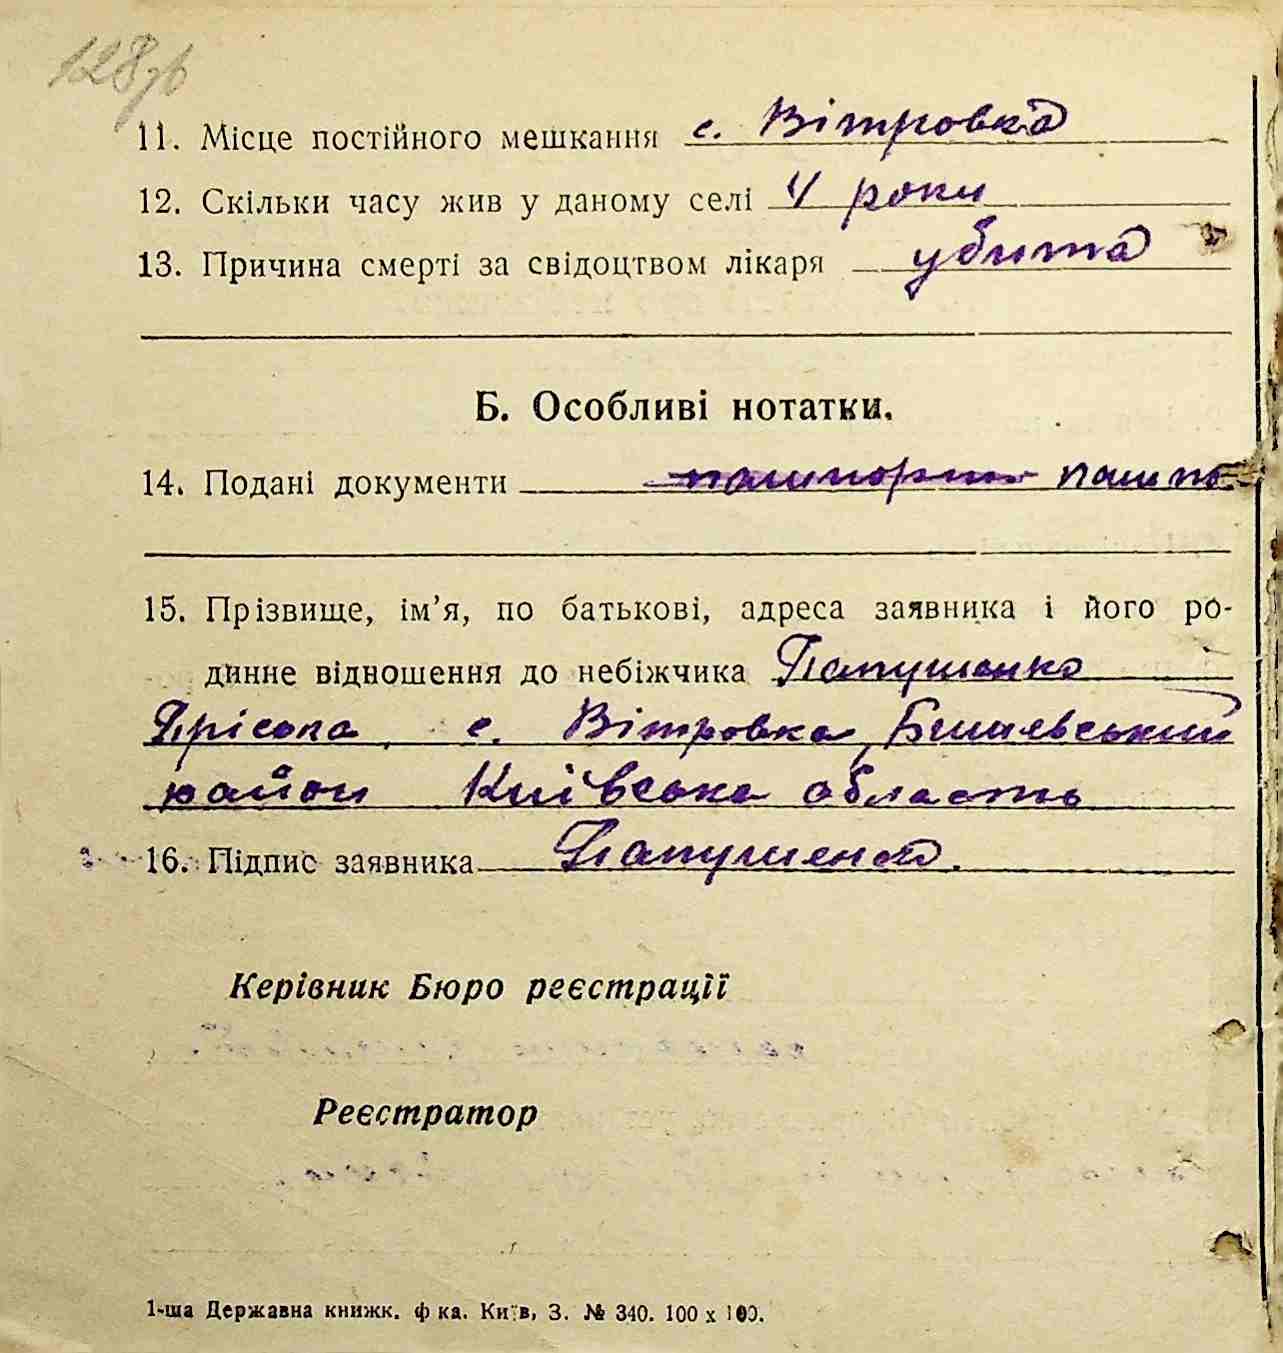 128зв
11. Місце постійного мешкання с. Вітровка
12. Скільки часу жив у даному селі 4 роки
13. Причина смерті за свідоцтвом лікаря убита
Б. Особливі нотатки.
14. Подані документи пашпорт пашпо.
15. Прізвище, ім'я, по батькові, адреса заявника і його ро-
динне відношення до небіжчика Папушенко
Пріська, с. Вітровка, Бишевський
район Київська область
16. Підпис заявника Папушенко.
Керівник Бюро реєстрації
Реєстратор
1-ша Державна книжк. ф ка. Київ, З. № 340. 100 x 100.